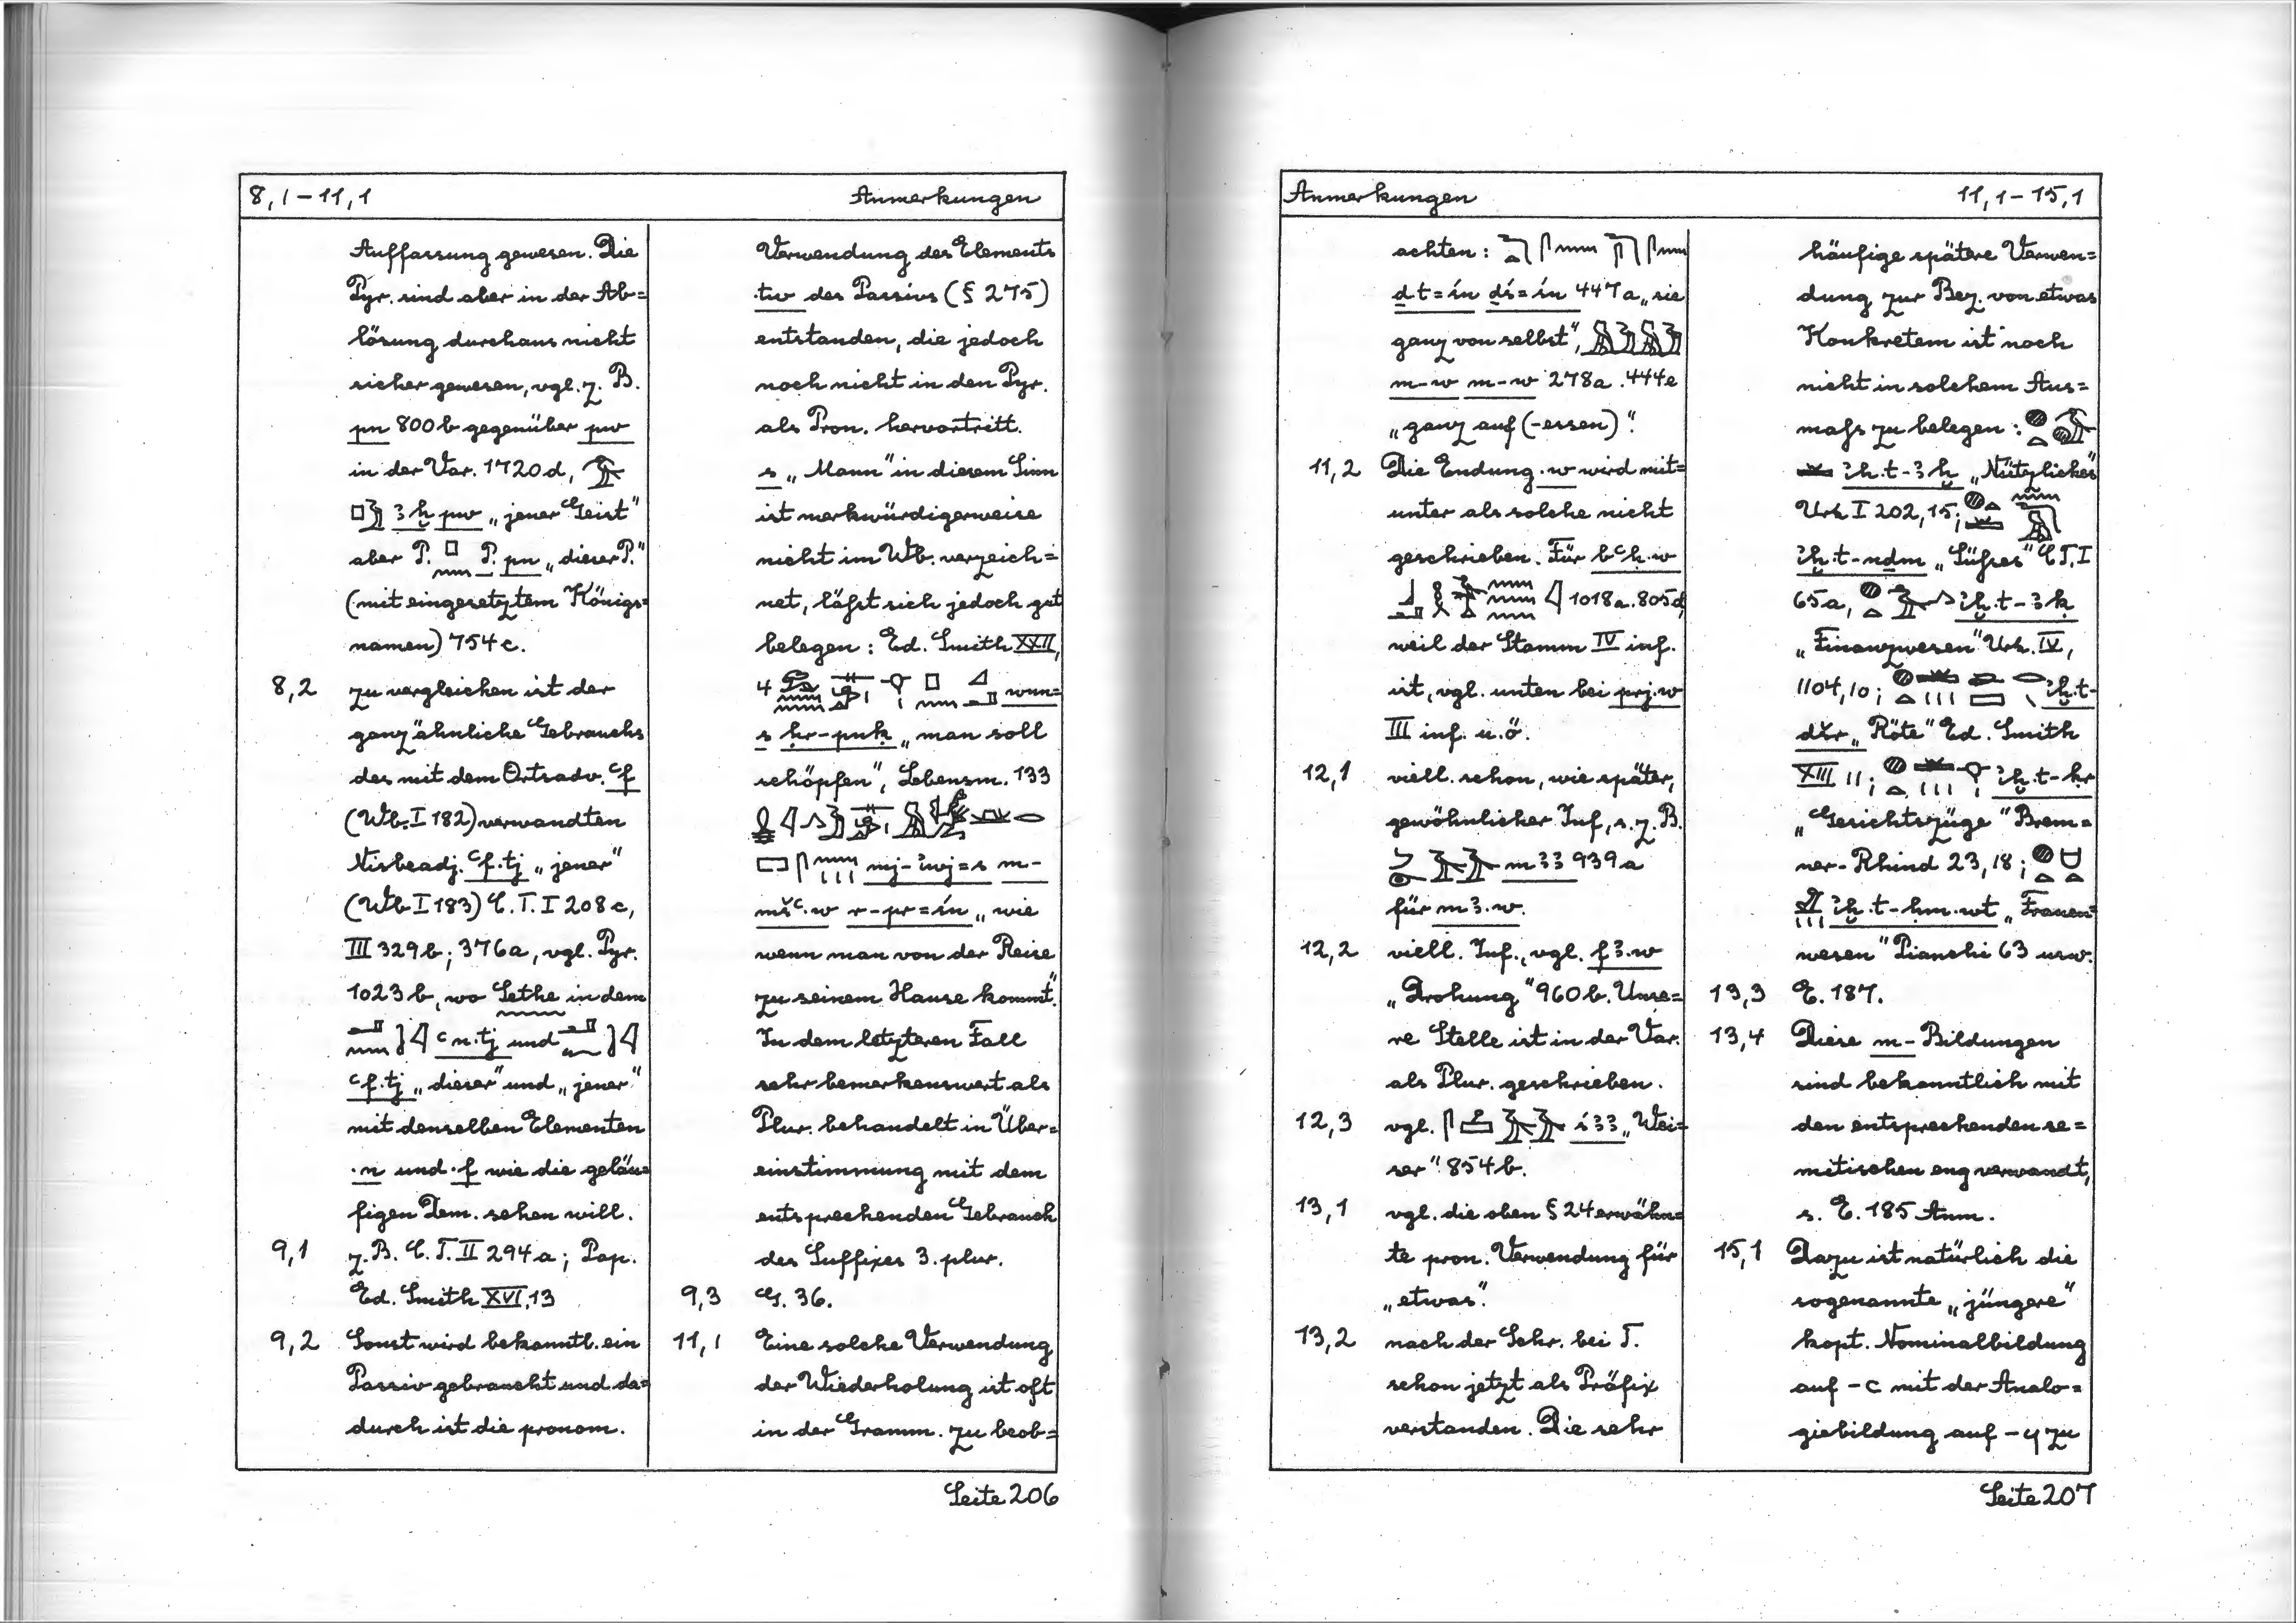 8,1–11,1 Anmerkungen
Auffassung gewesen. Die
Pyr. sind aber in der Ab=
lösung durchaus nicht
sicher gewesen, vgl. z. B.
pn 800b gegenüber pw
in der Var. 1720d,
ꜣḫ pw „jener Geist"
aber P. P. pn „dieser P."
(mit eingesetztem Königs=
namen) 754c.
8,2 zu vergleichen ist der
ganz ähnliche Gebrauch
des mit dem Ortsadv. ꜥf
(Wb. I 182) verwandten
Nisbeadj. ꜥf.tj „jener"
(Wb I 183) C.T. I 208c,
III 329b; 376a, vgl. Pyr.
1023b, wo Sethe in dem
ꜥn.tj und
ꜥf.tj „dieser" und „jener"
mit denselben Elementen
.n und .f wie die geläu=
figen Dem. sehen will.
9,1 z.B. C.T. II 294a; Pap.
Ed. Smith XVI,13
9,2 Sonst wird bekanntl. ein
Passiv gebraucht und da=
durch ist die pronom.
Verwendung des Elements
.tw des Passivs (§ 275)
entstanden, die jedoch
noch nicht in den Pyr.
als Pron. hervortritt.
s „Mann" in diesem Sinn
ist merkwürdigerweise
nicht im Wb. verzeich=
net, läßt sich jedoch gut
belegen: Ed. Smith XXII,
4 wnn=
s ḥr-pnḳ „man soll
schöpfen", Lebensm. 133
mj-ἰwj=s m-
mšꜥ.w r-pr=śn „wie
wenn man von der Reise
zu seinem Hause kommt".
In dem letzteren Fall
sehr bemerkenswert als
Plur. behandelt in Über=
einstimmung mit dem
entsprechenden Gebrauch
des Suffixes 3. plur.
9,3 G. 36.
11,1 Eine solche Verwendung
der Wiederholung ist oft
in der Gramm. zu beob=
Seite 206
Anmerkungen 11,1–15,1
achten:
ḏt=śn ḏś=śn 447a „sie
ganz von selbst",
m-w m-w 278a.444e
„ganz auf (-essen)".
11,2 Die Endung .w wird mit=
unter als solche nicht
geschrieben. Für bꜥḥ.w
1018a.805d,
weil der Stamm IV inf.
ist, vgl. unten bei prj.w
III inf. u.ö.
12,1 viell. schon, wie später,
gewöhnlicher Inf., s. z. B.
mꜣꜣ 939a
für mꜣ.w.
12,2 viell. Inf., vgl. fꜣ.w
„Drohung" 960b. Unse=
re Stelle ist in der Var.
als Plur. geschrieben.
12,3 vgl. śꜣꜣ „Wei=
ser" 854b.
13,1 vgl. die oben § 24 erwähn=
te pron. Verwendung für
„etwas".
13,2 nach der Schr. bei T.
schon jetzt als Präfix
verstanden. Die sehr
häufige spätere Verwen=
dung zur Bez. von etwas
Konkretem ist noch
nicht in solchem Aus=
maß zu belegen:
ἰḫ.t-ꜣḫ „Nützliches"
Urk I 202,15;
ἰḫ.t-nḏm „Süßes" C.T. I
65a, ἰḫ.t-ꜣḳ
„Finanzwesen" Urk. IV,
1104,10; ἰḫ.t-
dšr „Röte" Ed. Smith
XIII 11; ἰḫ.t-ḥr
„Gesichtszüge" Brem=
ner-Rhind 23,18;
ἰḫ.t-ḥm.wt „Frauen=
wesen" Pianchi 63 usw.
13,3 E. 187.
13,4 Diese m-Bildungen
sind bekanntlich mit
den entsprechenden se=
mitischen eng verwandt,
s. E. 185 Anm.
15,1 Dazu ist natürlich die
sogenannte „jüngere"
kopt. Nominalbildung
auf -c mit der Analo=
giebildung auf -y zu
Seite 207